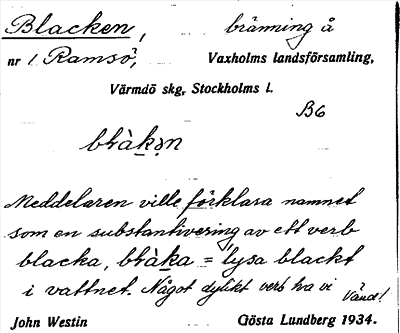 Blacken, bränning å
nr 1 Ramsö, Vaxholms landsförsamling,
Värmdö skg, Stockholms l.
B6
blàkən
Meddelaren ville förklara namnet
som en substantivering av ett verb
blacka, blàka = lysa blackt
i vattnet. Något dylikt verb ha vi
Vänd!
John Westin Gösta Lundberg 1934.